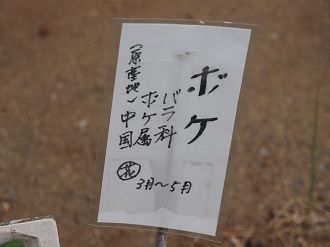 ボケ
バラ科
ボケ属
(原産地)中国
花 3月～5月